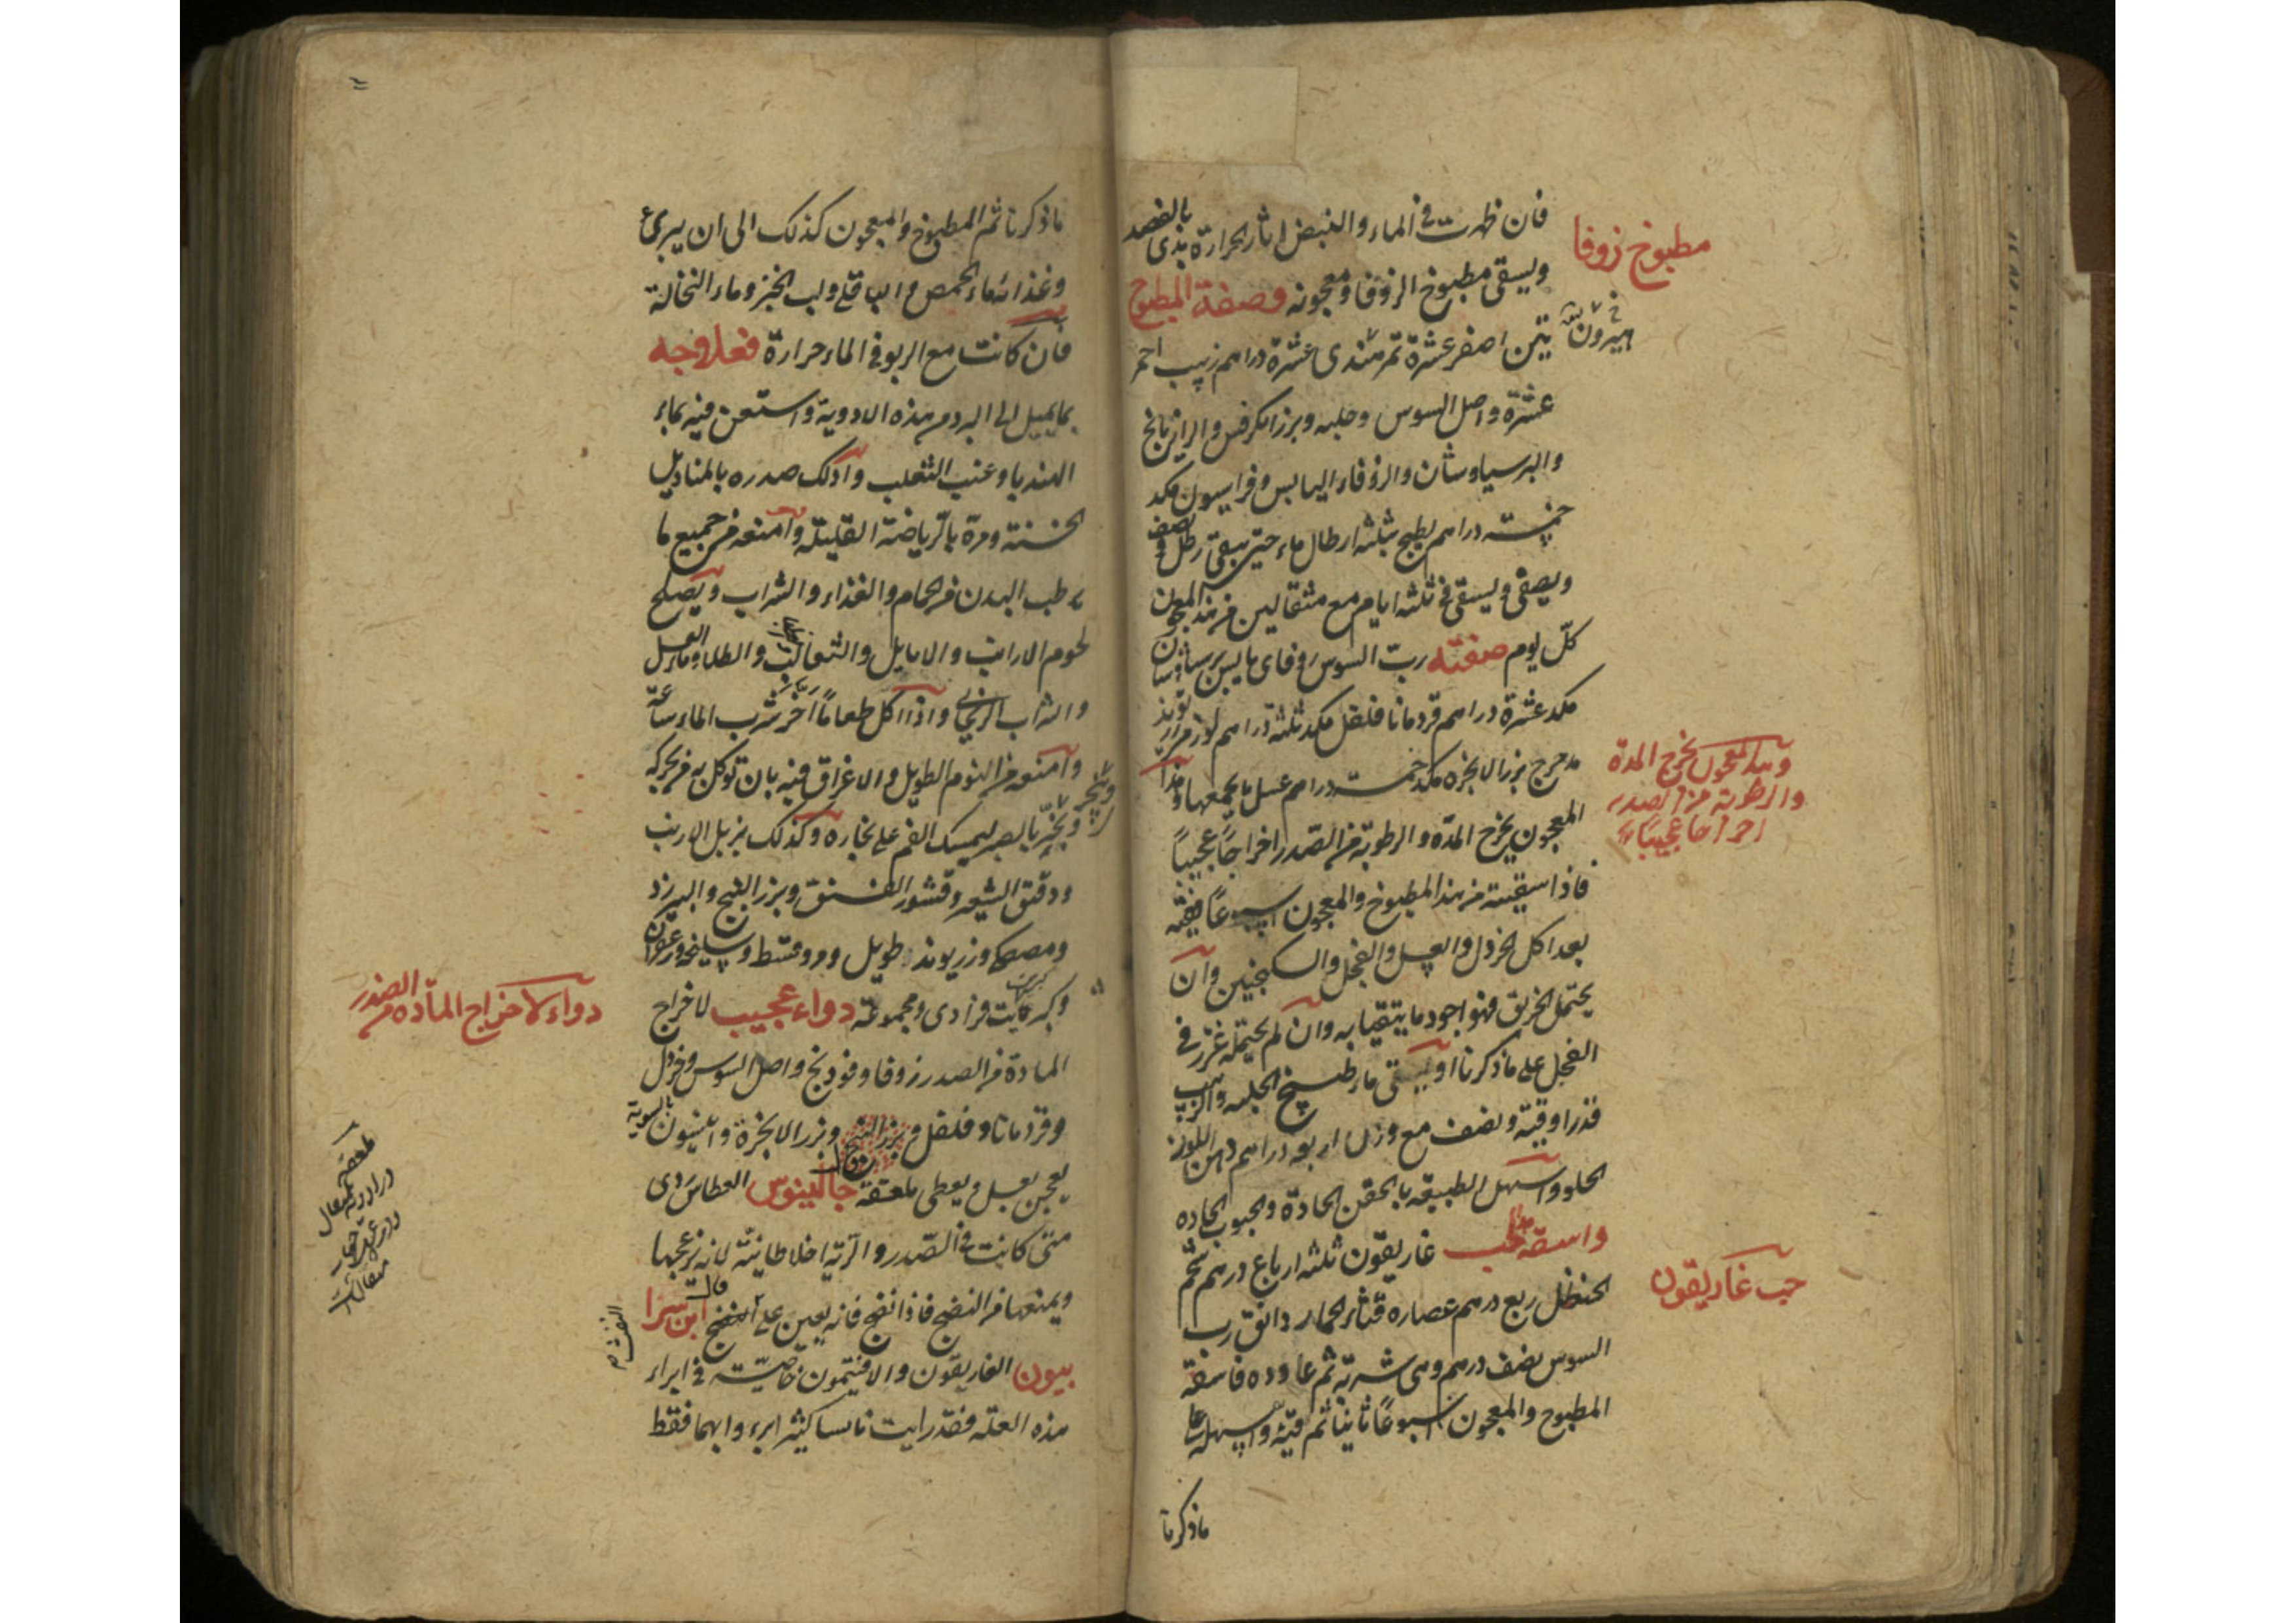 فان ظهرت في الماء والنبض اثار الحرارة بدى بالفصد
ويسقى مطبوخ الزوفا ومعجونه وصفة المطبوخ
مطبوخ زوفا
تين اصفر عشرة تمر هندى عشرة دراهم زبيب احمر
عشرة واصل السوس وحلبه وبزر الكرفس والرازيانج
والبرسياوشان والزوفاء اليابس وفراسيون مكد
خمسة دراهم يطبخ بثلثة ارطال ماء حتى يبقى رطل ونصف
ويصفى ويسقى في ثلثة ايام مع مثقالين من هذا المعجون
كل يوم صفته رب السوس زوفاى يابس برسياوشان
مكد عشرة دراهم قردمانا فلفل مكد ثلثة دراهم لوز مر
مدحرج بزر الانجزه مكد خمسة دراهم عسل ما يجمعها وهذا
وهذا المعجون يخرج المدة
والرطوبة من الصدر
اخراجا عجيبا
المعجون يخرج المده والرطوبة من الصدر اخراجاً عجيباً
فاذا سقيته من هذا المطبوخ والمعجون اسبوعاً فقيه
بعد اكل الخردل والعسل والفجل والسكنجبين وان
يحتمل الخربق فهو اجود ما يتقيا به وان لم يحتمله غرز في
الفجل على ما ذكرنا او يسقى ماء طبيخ الحلبه والزبيب
قدر اوقية ونصف مع وزن اربعه دراهم دهن اللوز
الحلو واسهل الطبيعه بالحقن الحادة والحبوب الحاده
واسقه هذا الحب غاريقون ثلثة ارباع درهم شحم
حب غاريقون
الحنظل ربع درهم عصاره قثاء الحمار دانق رب
السوس نصف درهم وهى شربة ثم عاوده فاسقه
المطبوخ والمعجون اسبوعاً ثانيا ثم قيئه واسهله على
ماذكرنا
ماذكرنا ثم المطبوخ والمعجون كذلك الى ان يبرئ
وغذائه ماء الحمص والباقلى ولب الخبز وماء النخالة
فان كانت مع الربو في الماء حرارة فعلاجه
بما يميل الى البرد من هذه الادوية واستعن فيه بماء
الهندبا وعنب الثعلب وادلك صدره بالمناديل
الخشنة ومره بالرياضة القليلة وامنعه من جميع ما
يرطب البدن من الحمام والغذاء والشراب ويصلح
لحوم الارانب والايايل والثعالب والطلا وماء العسل
والشراب الريحانى واذا اكل طعاماً اخر شرب الماء ساعة
وامنعه من النوم الطويل والاغراق فيه بان توكل به من يحركه
ويبخر بالصبر ليمسك الفم على بخاره وكذلك بزبل الارنب
ودقق الشيعه وقشور الفستق وبزر البنج والبيرزد
ومصطكى وزريوند طويل ومر وقسط وسليخه وزعفران
وكبريت فرادى ومجموعة دواء عجيب لاخراج
دواء لاخراج المادة من الصدر
المادة من الصدر زوفا وفودنج واصل السوس وخردل
وقردمانا وفلفل وبزر البنج وبزر الانجزة وانيسون بالسوية
يعجن بعسل ويعطى ملعقة جالينوس العطاس ردى
متى كانت في الصدر والرية اخلاط نيئة لانه يزعجها
ويمنعها من النضج فاذا نضج فانه يعين على النضج قال ابن سرا
بيون الغاريقون والافتيمون خاصيته في ابراء
هذه العلة فقد رايت ناسا كثير ابرء وابهما فقط